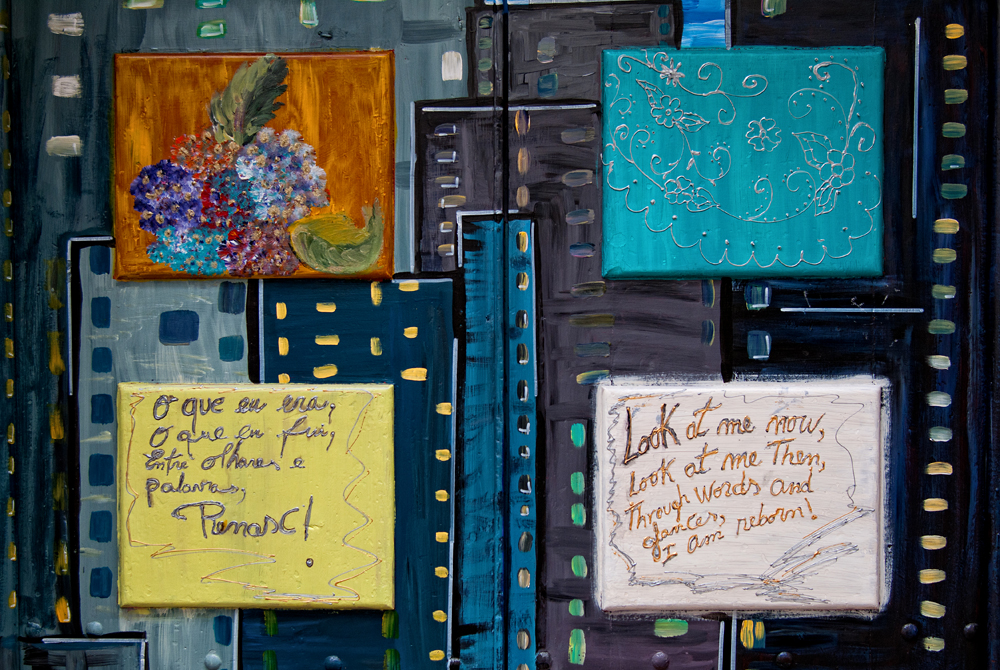 O que eu era,
O que eu fui,
Entre olhares e
palavras,
Renasci!
Look at me now,
Look at me Then,
Through Words and
glances,
I am reborn!